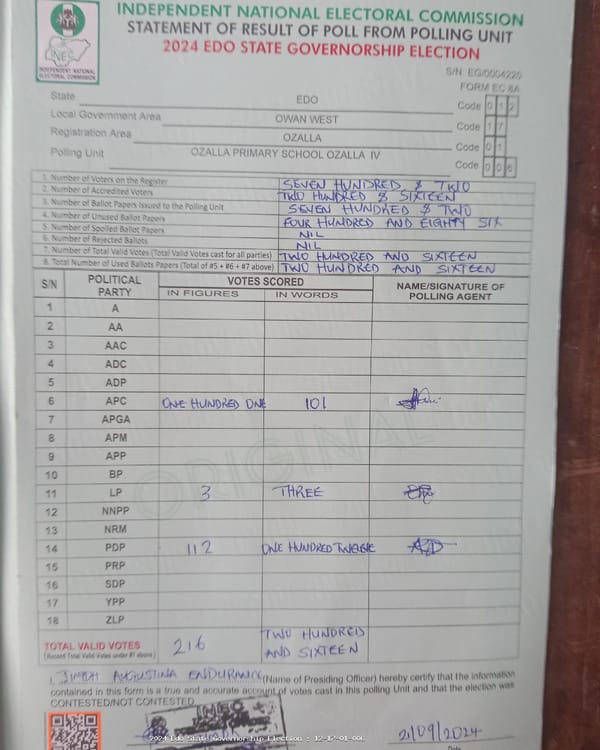 INDEPENDENT NATIONAL ELECTORAL COMMISSION
STATEMENT OF RESULT OF POLL FROM POLLING UNIT
2024 EDO STATE GOVERNORSHIP ELECTION
INEC
INDEPENDENT NATIONAL
ELECTORAL COMMISSION
S/N: EG/0004226
FORM EC 8A
State EDO Code 0 1 2
Local Government Area OWAN WEST Code 1 7
Registration Area OZALLA Code 0 1
Polling Unit OZALLA PRIMARY SCHOOL OZALLA IV Code 0 0 6
1. Number of Voters on the Register SEVEN HUNDRED & TWO
2. Number of Accredited Voters TWO HUNDRED & SIXTEEN
3. Number of Ballot Papers Issued to the Polling Unit SEVEN HUNDRED & TWO
4. Number of Unused Ballot Papers FOUR HUNDRED AND EIGHTY SIX
5. Number of Spoiled Ballot Papers NIL
6. Number of Rejected Ballots NIL
7. Number of Total Valid Votes (Total Valid Votes cast for all parties) TWO HUNDRED AND SIXTEEN
8. Total Number of Used Ballots Papers (Total of #5 + #6 + #7 above) TWO HUNDRED AND SIXTEEN
S/N POLITICAL PARTY VOTES SCORED NAME/SIGNATURE OF POLLING AGENT
IN FIGURES IN WORDS
1 A
2 AA
3 AAC
4 ADC
5 ADP
6 APC ONE HUNDRED ONE 101
7 APGA
8 APM
9 APP
10 BP
11 LP 3 THREE
12 NNPP
13 NRM
14 PDP 112 ONE HUNDRED TWELVE
15 PRP
16 SDP
17 YPP
18 ZLP
ORIGINAL
TOTAL VALID VOTES 216 TWO HUNDRED
(Record Total Valid Votes under #7 above) AND SIXTEEN
I, AUGUSTINA ENDURANCE (Name of Presiding Officer) hereby certify that the information
contained in this form is a true and accurate account of votes cast in this polling Unit and that the election was
CONTESTED/NOT CONTESTED
INEC
21/09/2024
2024 Edo State Governorship Election : 12_17_01_006
Date